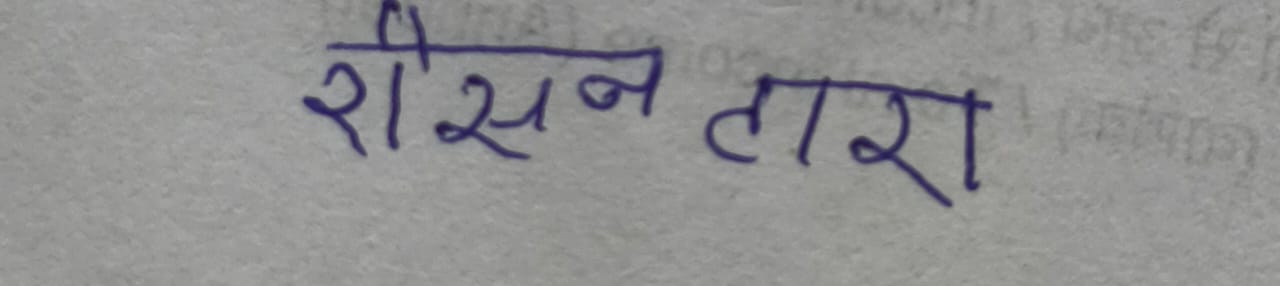 रौसन तारा